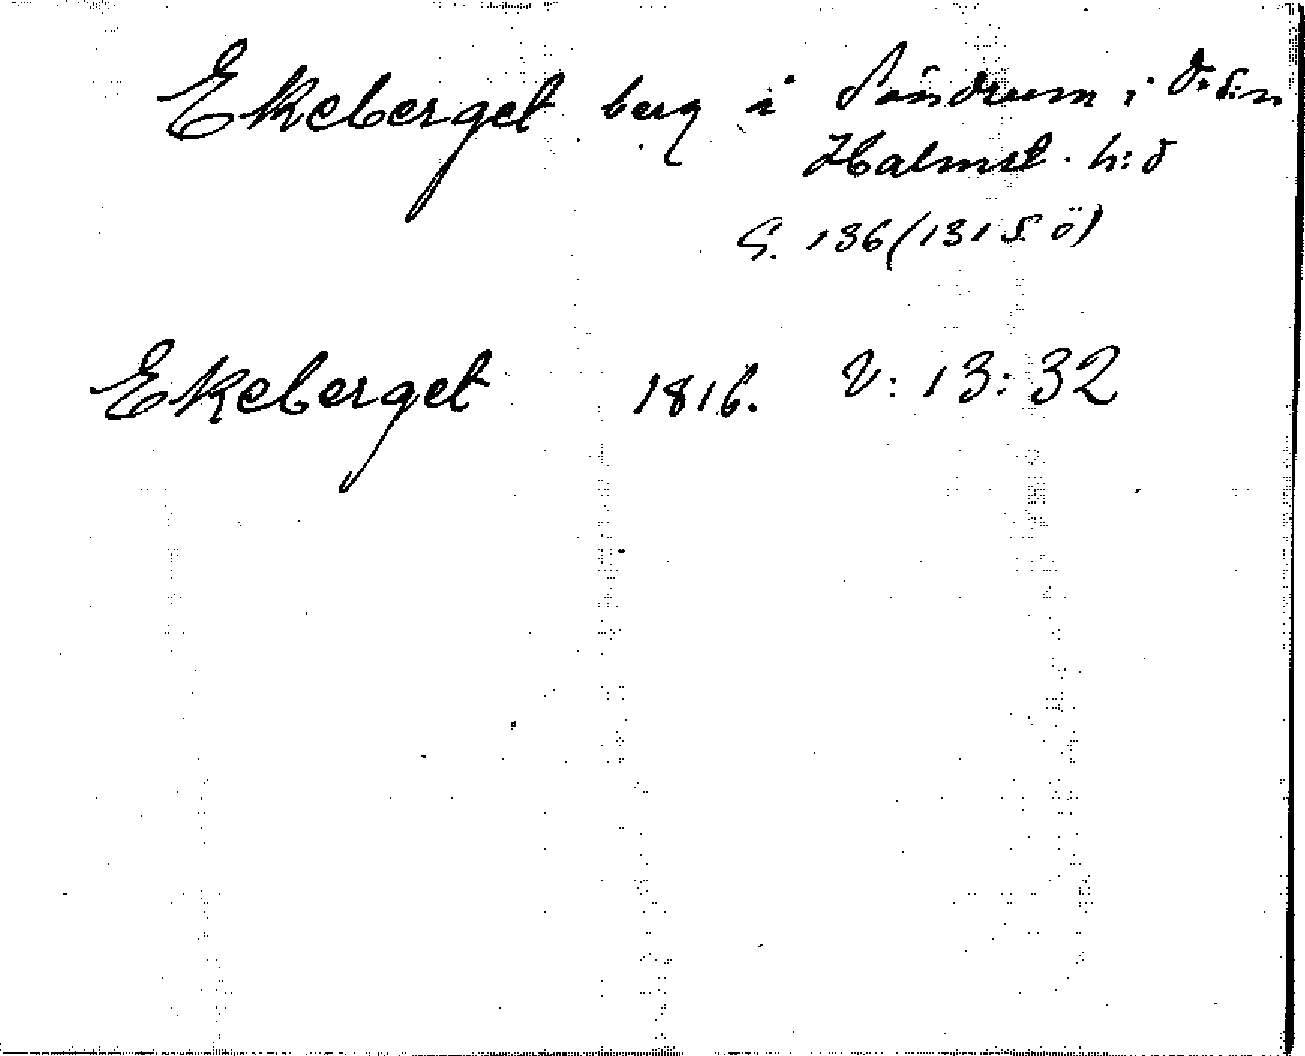 Ekeberget berg å Söndrum i d:o s:n
Halmst. h:d
G. 136 (131 S. ö)
Ekeberget 1816. V: 13: 32